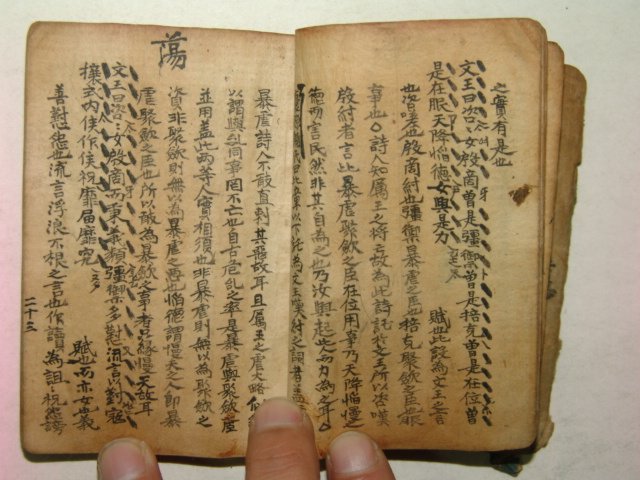 之實有是也
文王曰咨咨女殷商曾是彊禦曾是掊克曾是在位曾
是在服天降慆德女興是力 賦也此設為文王之言
也咨嗟也殷商紂也彊禦暴虐之臣也掊克聚斂之臣也服
事也○詩人知厲王之將亡故為此詩託於文王所以咨嘆
殷紂者言此暴虐聚斂之臣在位用事乃天降慆慢之
德而害民然非其自為之也乃汝興起此而力為之耳○
暴虐詩人不敢直刺其惡故耳且厲王之虐大略
以謂與紂同事罔不亡也自古危乱之率是暴虐與聚斂
並用盖此兩等人實相須也非暴虐則無以為聚斂之
資非聚斂則無以為暴虐之
虐聚斂之臣也所以敢為暴斂之事者只緣慢天故耳
文王曰咨咨女殷商而秉義類彊禦多懟流言以對寇
攘式內侯作侯祝靡届靡究 賦也而亦女也義
善懟怨也流言浮浪不根之言也作讀為詛詛祝怨謗
蕩
二十三